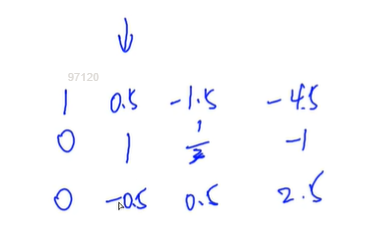 97120
1 0.5 -1.5 -4.5
0 1 -1
0 -0.5 0.5 2.5